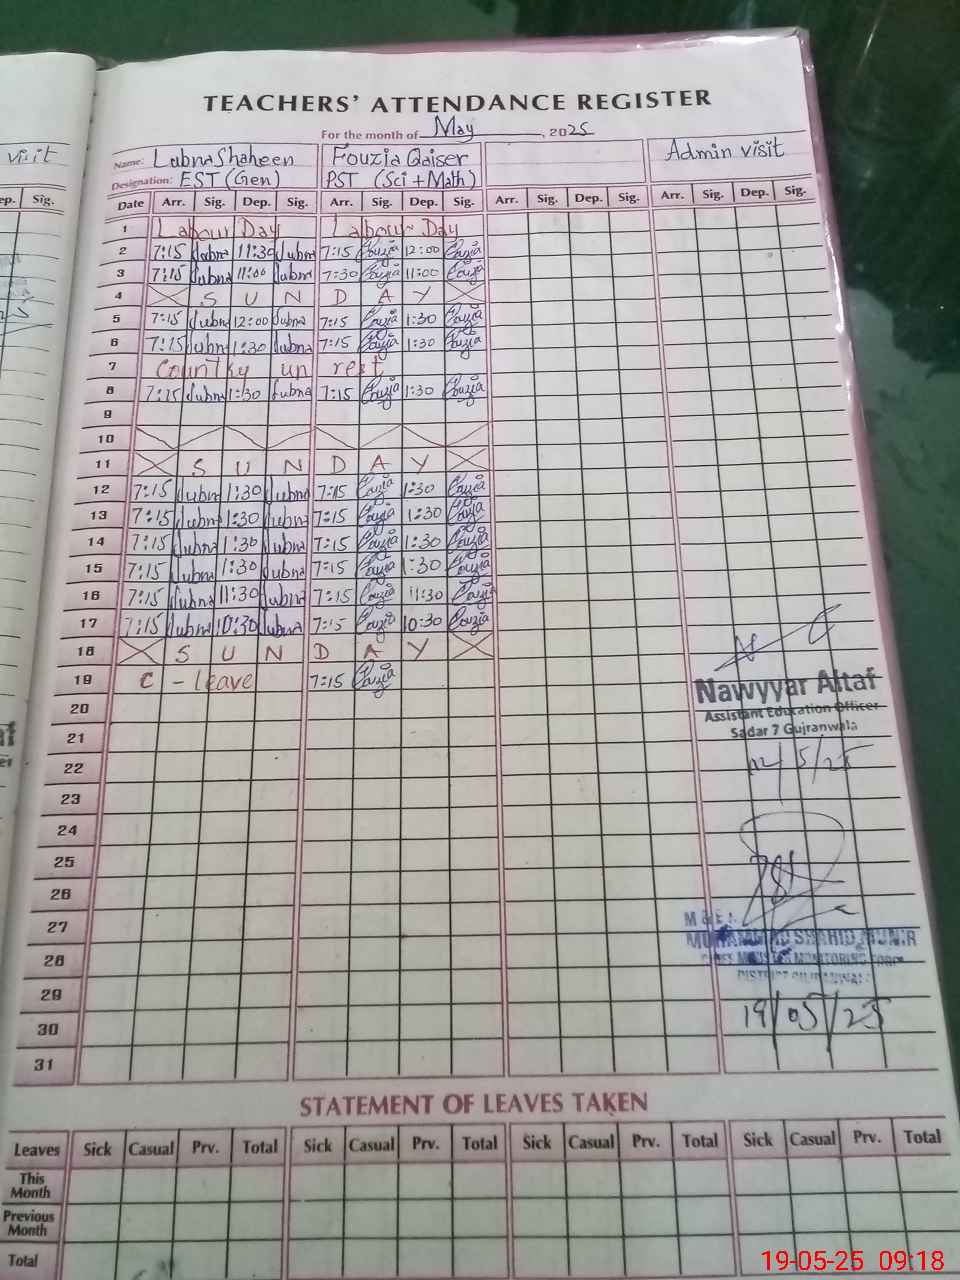 TEACHERS' ATTENDANCE REGISTER
For the month of May, 2025
visit
Name: Lubna Shaheen Fouzia Qaiser Admin visit
Designation: EST (Gen) PST (Sci + Math)
ep. Sig.
Date Arr. Sig. Dep. Sig. Arr. Sig. Dep. Sig. Arr. Sig. Dep. Sig. Arr. Sig. Dep. Sig.
1 Labour Day Labour Day
2 7:15 Lubna 11:30 Lubna 7:15 Fouzia 12:00 Fouzia
3 7:15 Lubna 11:00 Lubna 7:30 Fouzia 11:00 Fouzia
4 S U N D A Y
5 7:15 Lubna 12:00 Lubna 7:15 Fouzia 1:30 Fouzia
6 7:15 Lubna 1:30 Lubna 7:15 Fouzia 1:30 Fouzia
7 Country un rest
8 7:15 Lubna 1:30 Lubna 7:15 Fouzia 1:30 Fouzia
9
10
11 S U N D A Y
12 7:15 Lubna 1:30 Lubna 7:15 Fouzia 1:30 Fouzia
13 7:15 Lubna 1:30 Lubna 7:15 Fouzia 1:30 Fouzia
14 7:15 Lubna 1:30 Lubna 7:15 Fouzia 1:30 Fouzia
15 7:15 Lubna 1:30 Lubna 7:15 Fouzia 1:30 Fouzia
16 7:15 Lubna 11:30 Lubna 7:15 Fouzia 11:30 Fouzia
17 7:15 Lubna 10:30 Lubna 7:15 Fouzia 10:30 Fouzia
18 S U N D A Y
19 C - leave 7:15 Fouzia
Nawyyar Altaf
20
Assistant Education Officer
Sadar 7 Gujranwala
21
12/5/25
22
23
24
25
26
27
M & E A
MUHAMMAD SHAHID MUNIR
28
CHIEF MINISTER MONITORING FORCE
DISTRICT GUJRANWALA
29
19/05/25
30
31
STATEMENT OF LEAVES TAKEN
Leaves Sick Casual Prv. Total Sick Casual Prv. Total Sick Casual Prv. Total Sick Casual Prv. Total
This Month
Previous Month
Total
19-05-25 09:18